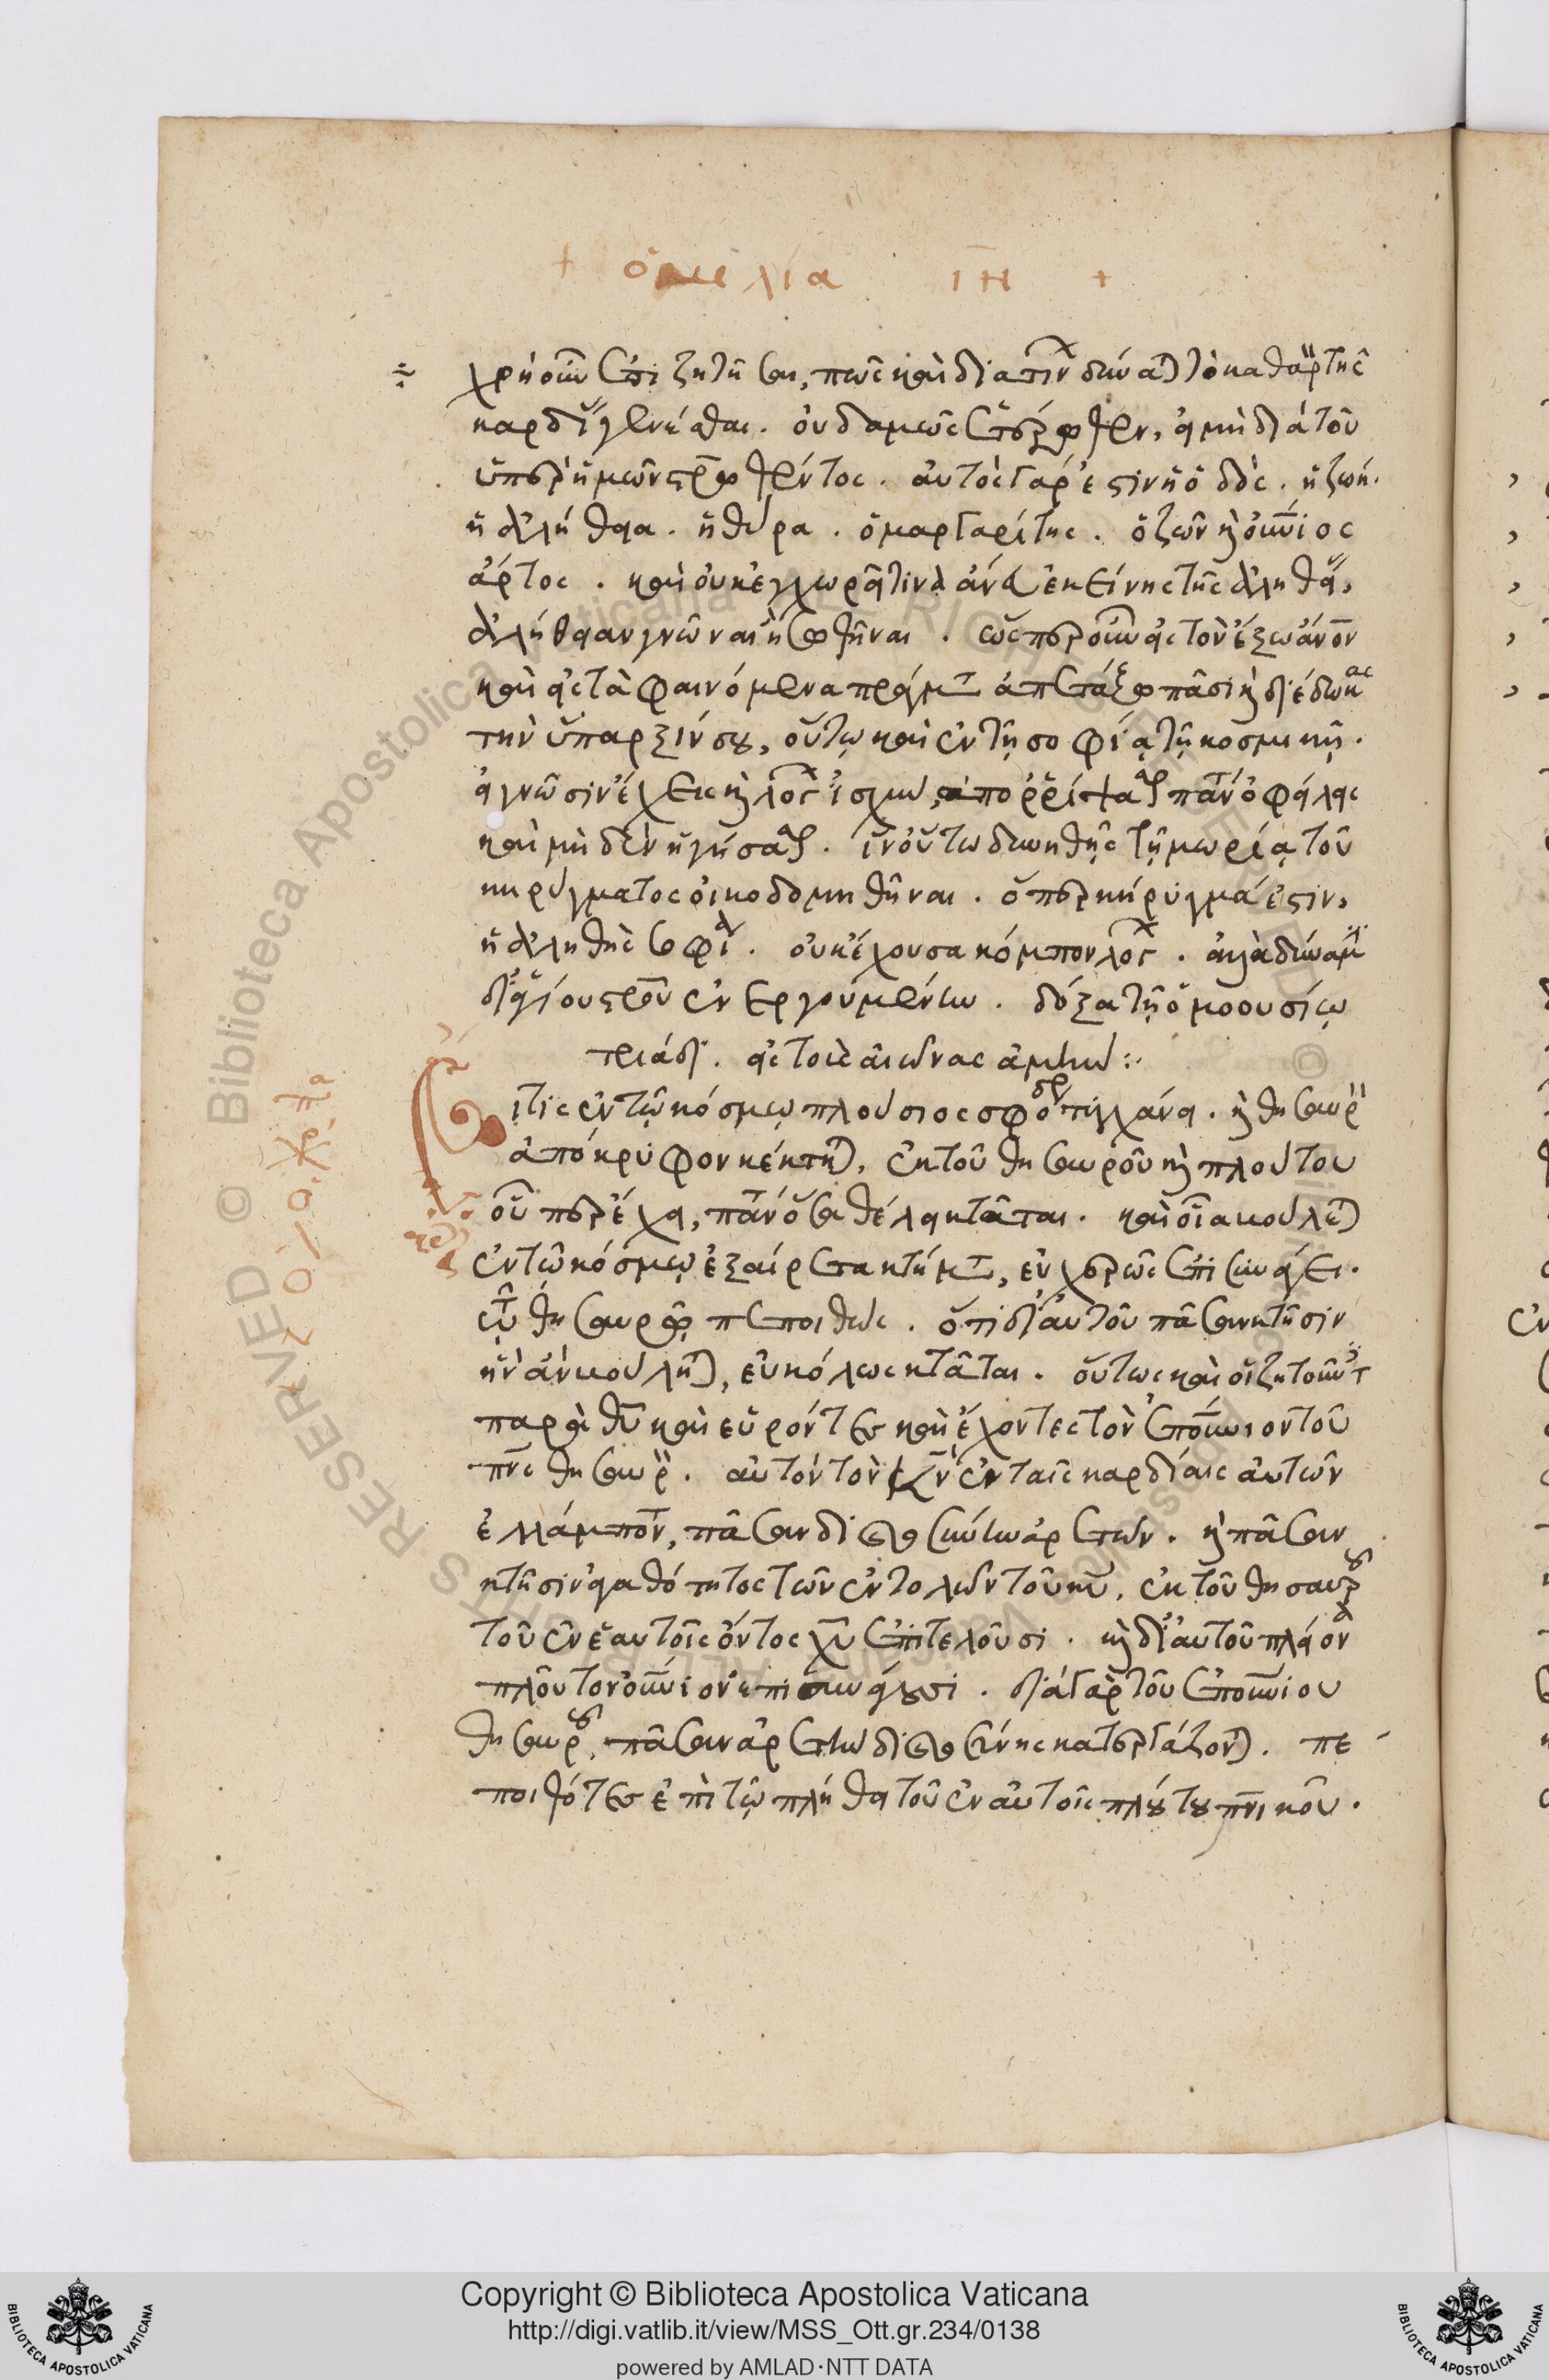 + ὁμιλία ιη +
χρὴ οὖν ἐπιζητῆσαι, πῶς καὶ διὰ τίνων δύναται τὸ καθαρὸν τῆς
καρδίας γενέσθαι. οὐδαμῶς ἑτέρωθεν, εἰ μὴ διὰ τοῦ
ὑπὲρ ἡμῶν σταυρωθέντος. αὐτὸς γάρ ἐστιν ἡ ὁδὸς. ἡ ζωή.
ἡ ἀλήθεια. ἡ θύρα. ὁ μαργαρίτης. ὁ ζῶν καὶ οὐράνιος
ἄρτος. καὶ οὐκ ἐγχωρεῖ τινὰ ἄνευ ἐκείνης τῆς ἀληθείας,
ἀλήθειαν γνῶναι ἢ σωθῆναι. ὥσπερ οὖν εἰς τὸν ἔξω ἄνον
καὶ εἰς τὰ φαινόμενα πράγματα ἀπετάξω πᾶσι καὶ διέδωκας
τὴν ὕπαρξίν σου, οὕτω καὶ ἐν τῇ σοφίᾳ τῇ κοσμικῇ.
εἰ γνῶσιν ἔχεις καὶ λόγων ἰσχὺν, ἀπορρίψαι πάντα ὀφείλεις
καὶ μηδὲν ἡγήσασθαι. ἵν' οὕτω δυνηθῇς τῇ μωρίᾳ τοῦ
κηρύγματος οἰκοδομηθῆναι. ὅπερ κήρυγμά ἐστιν,
ἡ ἀληθὴς σοφία. οὐκ ἔχουσα κόμπον λόγων. ἀλλὰ δύναμιν
δι' ἁγίου σταυροῦ ἐνεργουμένην. δόξα τῇ ὁμοουσίῳ
τριάδι. εἰς τοὺς αἰῶνας ἀμήν:.
Εἴ τις ἐν τῷ κόσμῳ πλούσιος σφόδρα τυγχάνει. καὶ θησαυρὸν
ἀπόκρυφον κέκτηται, ἐκ τοῦ θησαυροῦ καὶ πλούτου
οὗπερ ἔχει, πάντα ὅσα θέλει κτᾶται. καὶ οἷα βούλεται
ἐν τῷ κόσμῳ ἐξαίρετα κτήματα, εὐχερῶς ἐπισυνάγει.
τῷ θησαυρῷ πεποιθὼς. ὅτι δι' αὐτοῦ πᾶσαν κτῆσιν
ἣν ἂν βούληται, εὐκόλως κτᾶται. οὕτως καὶ οἱ ζητοῦντες
παρὰ θυ καὶ εὑρόντες καὶ ἔχοντες τὸν ἐπουράνιον τοῦ
πνς θησαυρὸν. αὐτὸν τὸν κν ἐν ταῖς καρδίαις αὐτῶν
ἐλλάμποντα, πᾶσαν δικαιοσύνην ἀρετῶν. καὶ πᾶσαν
κτῆσιν ἀγαθότητος τῶν ἐντολῶν τοῦ κυ, ἐκ τοῦ θησαυροῦ
τοῦ ἐν ἑαυτοῖς ὄντος χυ ἐπιτελοῦσι. καὶ δι' αὐτοῦ πλείονα
πλοῦτον οὐράνιον ἐπισυνάγουσι. διὰ γὰρ τοῦ ἐπουρανίου
θησαυροῦ, πᾶσαν ἀρετὴν δικαιοσύνης κατεργάζονται. πε
ποιθότες ἐπὶ τῷ πλήθει τοῦ ἐν αὐτοῖς πλούτου πνικοῦ.
Copyright © Biblioteca Apostolica Vaticana
http://digi.vatlib.it/view/MSS_Ott.gr.234/0138
powered by AMLAD·NTT DATA